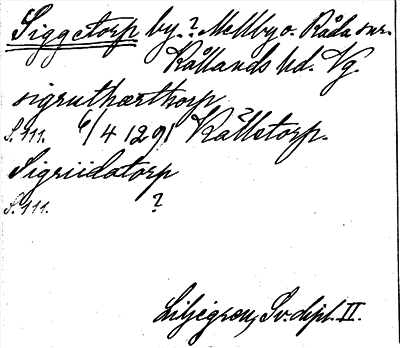 Siggetorp by.? Mellby o. Råda snr.
Kållands hd. Vg.
sigruthærthorp
S. 111. 6/4 1291 Källstorp.?
Sigriidatorp
S. 111. ?
Liljegren, Sv. dipl. II.